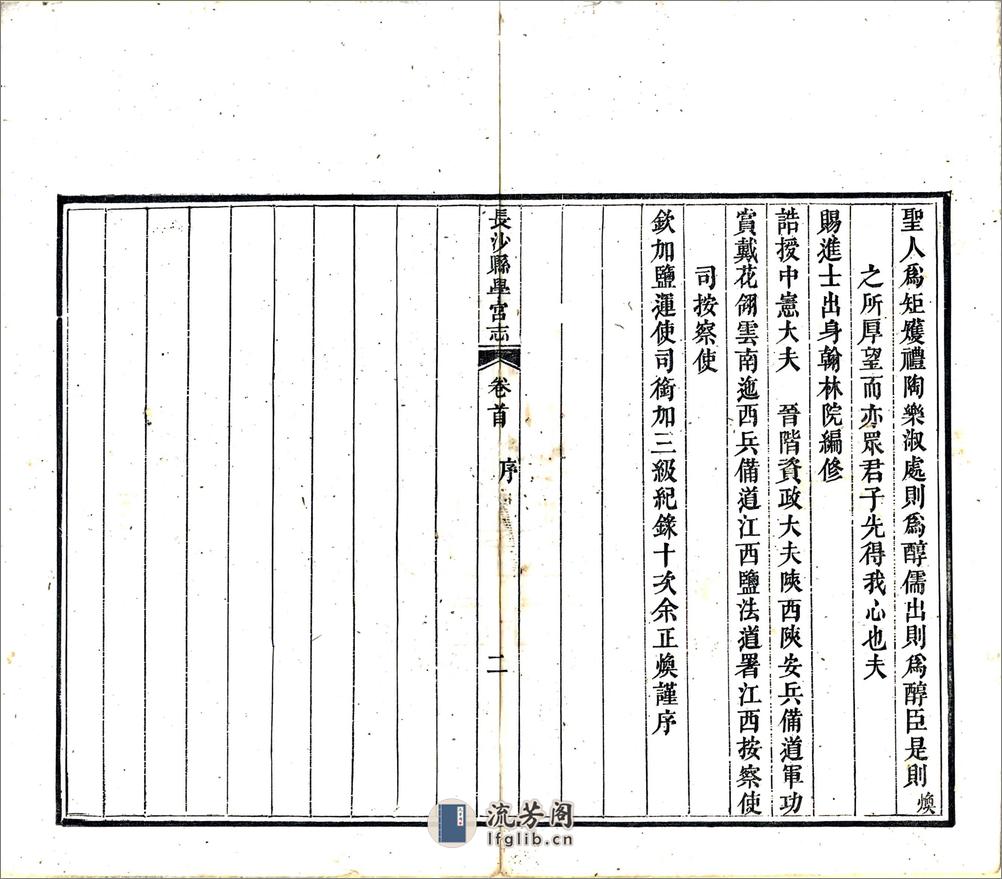 聖人爲矩矱禮陶樂淑處則爲醇儒出則爲醇臣是則煥
之所厚望而亦眾君子先得我心也夫
賜進士出身翰林院編修
誥授中憲大夫　晉階資政大夫陝西陝安兵備道軍功
賞戴花翎雲南迤西兵備道江西鹽法道署江西按察使
司按察使
欽加鹽運使司銜加三級紀錄十次余正煥謹序
長沙縣學宮志
卷首
序
二
流芳阁
lfglib.cn